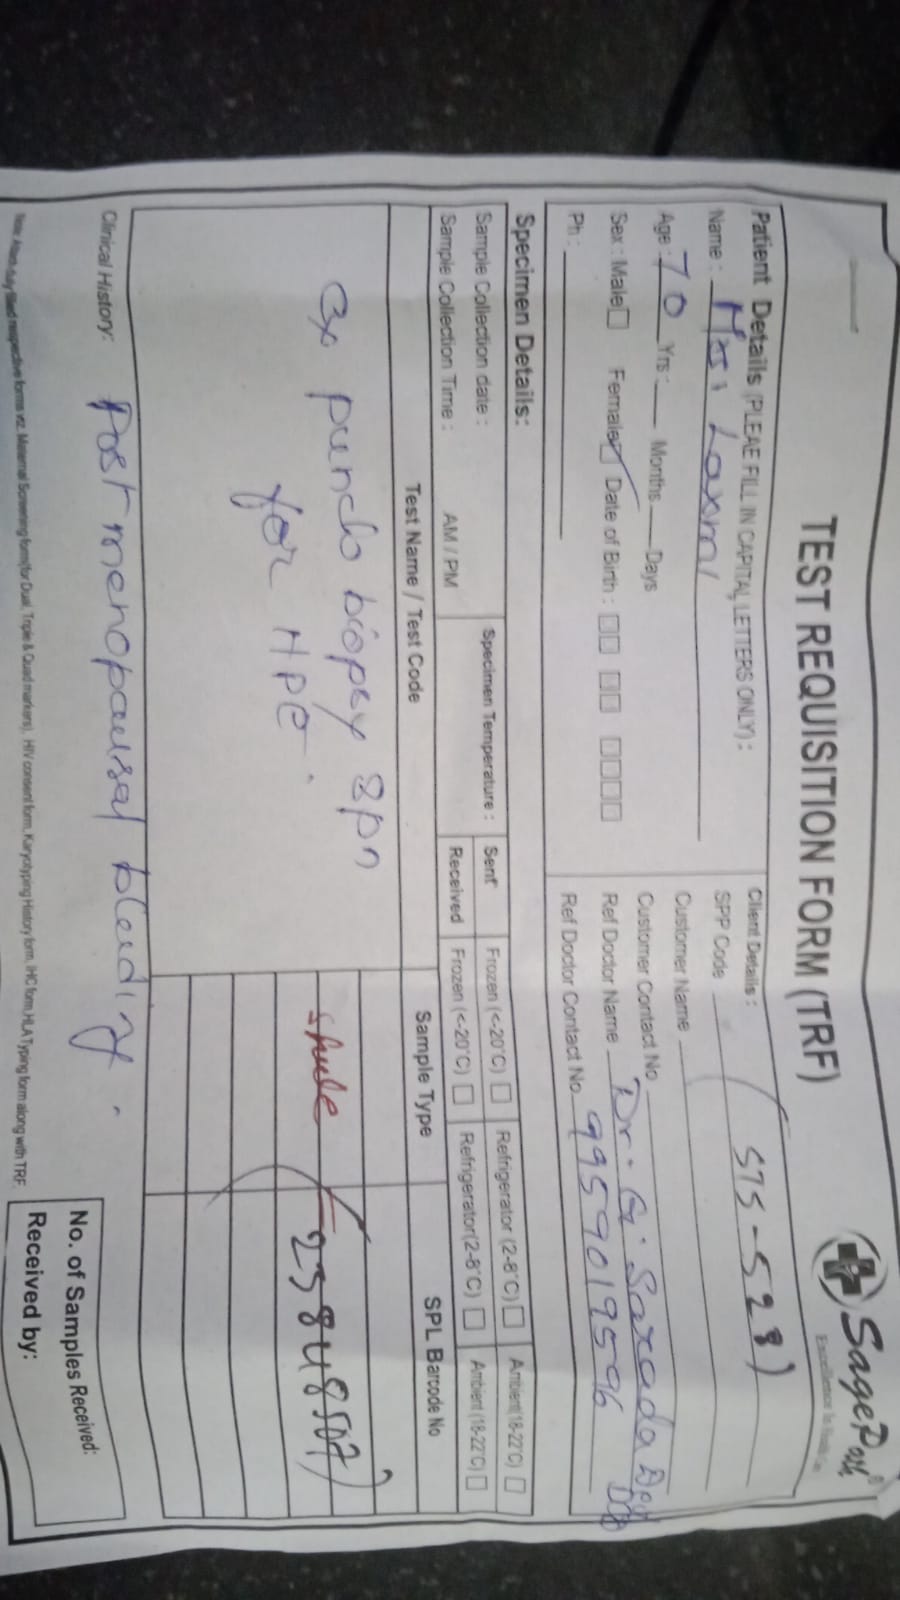 SagePath
TEST REQUISITION FORM (TRF)
Patient Details (PLEAE FILL IN CAPITAL LETTERS ONLY) :
Name : Mrs. Laxmi
Age : 70 Yrs : Months Days
Sex : Male Female Date of Birth :
Ph :
Client Details :
SPP Code (STS-528)
Customer Name
Customer Contact No
Ref Doctor Name Dr. G. Sarada
Ref Doctor Contact No. 9959019596
Specimen Details:
Sample Collection date :
Sample Collection Time : AM / PM
Specimen Temperature :
Sent Frozen (<-20°C) Refrigerator (2-8°C) Ambient (18-22°C)
Received Frozen (<-20°C) Refrigerator(2-8°C) Ambient (18-22°C)
Test Name / Test Code Sample Type SPL Barcode No
Cx punch biopsy spn
for HPE.
23848507
Clinical History: Post menopausal bleeding.
No. of Samples Received:
Received by:
Note: Attach duly filled respective forms viz. Maternal Screening form(for Dual, Triple & Quad markers), HIV consent form, Karyotyping History form, IHC form, HLA Typing form along with TRF.